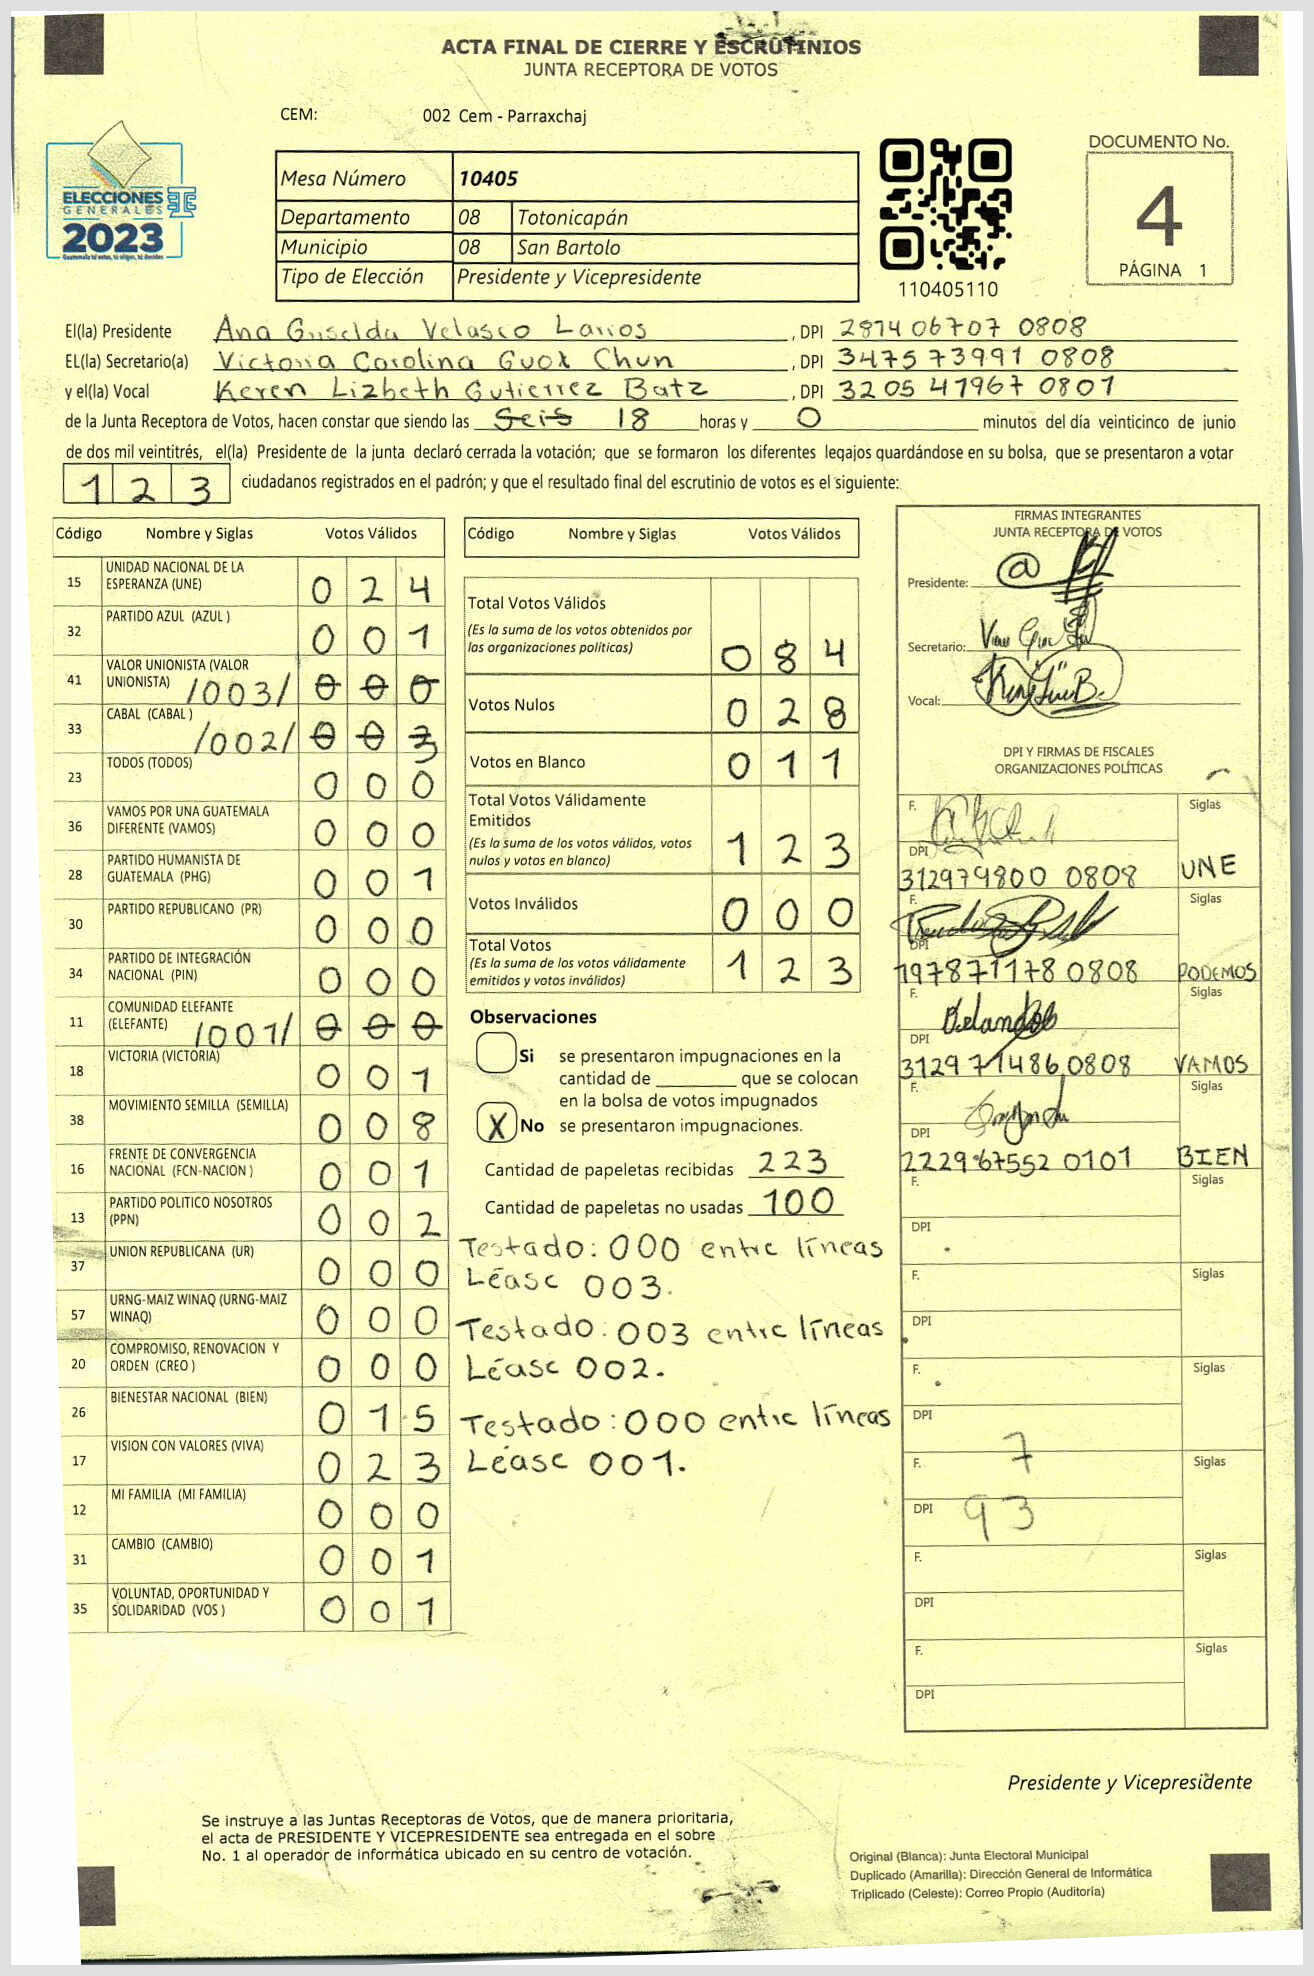 ACTA FINAL DE CIERRE Y ESCRUTINIOS
JUNTA RECEPTORA DE VOTOS
CEM: 002 Cem - Parraxchaj
ELECCIONES
GENERALES
2023
Guatemala tú votas, tú eliges, tú decides
Mesa Número 10405
Departamento 08 Totonicapán
Municipio 08 San Bartolo
Tipo de Elección Presidente y Vicepresidente
110405110
DOCUMENTO No.
4
PÁGINA 1
El(la) Presidente Ana Griselda Velasco Larios , DPI 2874 06707 0808
EL(la) Secretario(a) Victoria Carolina Guox Chun , DPI 3475 73991 0808
y el(la) Vocal Keren Lizbeth Gutierrez Batz , DPI 3205 47967 0801
de la Junta Receptora de Votos, hacen constar que siendo las Seis 18 horas y 0 minutos del día veinticinco de junio
de dos mil veintitrés, el(la) Presidente de la junta declaró cerrada la votación; que se formaron los diferentes legajos guardándose en su bolsa, que se presentaron a votar
1 2 3 ciudadanos registrados en el padrón; y que el resultado final del escrutinio de votos es el siguiente:
Código Nombre y Siglas Votos Válidos
15 UNIDAD NACIONAL DE LA
ESPERANZA (UNE) 0 2 4
32 PARTIDO AZUL (AZUL ) 0 0 1
41 VALOR UNIONISTA (VALOR
UNIONISTA) /003/ 0 0 0
33 CABAL (CABAL ) /002/ 0 0 3
23 TODOS (TODOS) 0 0 0
36 VAMOS POR UNA GUATEMALA
DIFERENTE (VAMOS) 0 0 0
28 PARTIDO HUMANISTA DE
GUATEMALA (PHG) 0 0 1
30 PARTIDO REPUBLICANO (PR) 0 0 0
34 PARTIDO DE INTEGRACIÓN
NACIONAL (PIN) 0 0 0
11 COMUNIDAD ELEFANTE
(ELEFANTE) /001/ 0 0 0
18 VICTORIA (VICTORIA) 0 0 1
38 MOVIMIENTO SEMILLA (SEMILLA) 0 0 8
16 FRENTE DE CONVERGENCIA
NACIONAL (FCN-NACION ) 0 0 1
13 PARTIDO POLITICO NOSOTROS
(PPN) 0 0 2
37 UNION REPUBLICANA (UR) 0 0 0
57 URNG-MAIZ WINAQ (URNG-MAIZ
WINAQ) 0 0 0
20 COMPROMISO, RENOVACION Y
ORDEN (CREO ) 0 0 0
26 BIENESTAR NACIONAL (BIEN) 0 1 5
17 VISION CON VALORES (VIVA) 0 2 3
12 MI FAMILIA (MI FAMILIA) 0 0 0
31 CAMBIO (CAMBIO) 0 0 1
35 VOLUNTAD, OPORTUNIDAD Y
SOLIDARIDAD (VOS ) 0 0 1
Código Nombre y Siglas Votos Válidos
Total Votos Válidos
(Es la suma de los votos obtenidos por
las organizaciones políticas) 0 8 4
Votos Nulos 0 2 8
Votos en Blanco 0 1 1
Total Votos Válidamente
Emitidos
(Es la suma de los votos válidos, votos
nulos y votos en blanco) 1 2 3
Votos Inválidos 0 0 0
Total Votos
(Es la suma de los votos válidamente
emitidos y votos inválidos) 1 2 3
Observaciones
Si se presentaron impugnaciones en la
cantidad de ________ que se colocan
en la bolsa de votos impugnados
X No se presentaron impugnaciones.
Cantidad de papeletas recibidas 223
Cantidad de papeletas no usadas 100
Testado: 000 entre líneas
Léase 003.
Testado: 003 entre líneas
Léase 002.
Testado: 000 entre líneas
Léase 001.
FIRMAS INTEGRANTES
JUNTA RECEPTORA DE VOTOS
Presidente:
Secretario:
Vocal:
DPI Y FIRMAS DE FISCALES
ORGANIZACIONES POLÍTICAS
F. Siglas
DPI
312979800 0808 UNE
F. Siglas
DPI
197871178 0808 PODEMOS
F. Siglas
DPI
312971486 0808 VAMOS
F. Siglas
DPI
222967552 0101 BIEN
F. Siglas
DPI
F. Siglas
DPI
F. Siglas
DPI
F. 7 Siglas
DPI 93
F. Siglas
DPI
F. Siglas
DPI
Presidente y Vicepresidente
Se instruye a las Juntas Receptoras de Votos, que de manera prioritaria,
el acta de PRESIDENTE Y VICEPRESIDENTE sea entregada en el sobre
No. 1 al operador de informática ubicado en su centro de votación.
Original (Blanca): Junta Electoral Municipal
Duplicado (Amarilla): Dirección General de Informática
Triplicado (Celeste): Correo Propio (Auditoría)